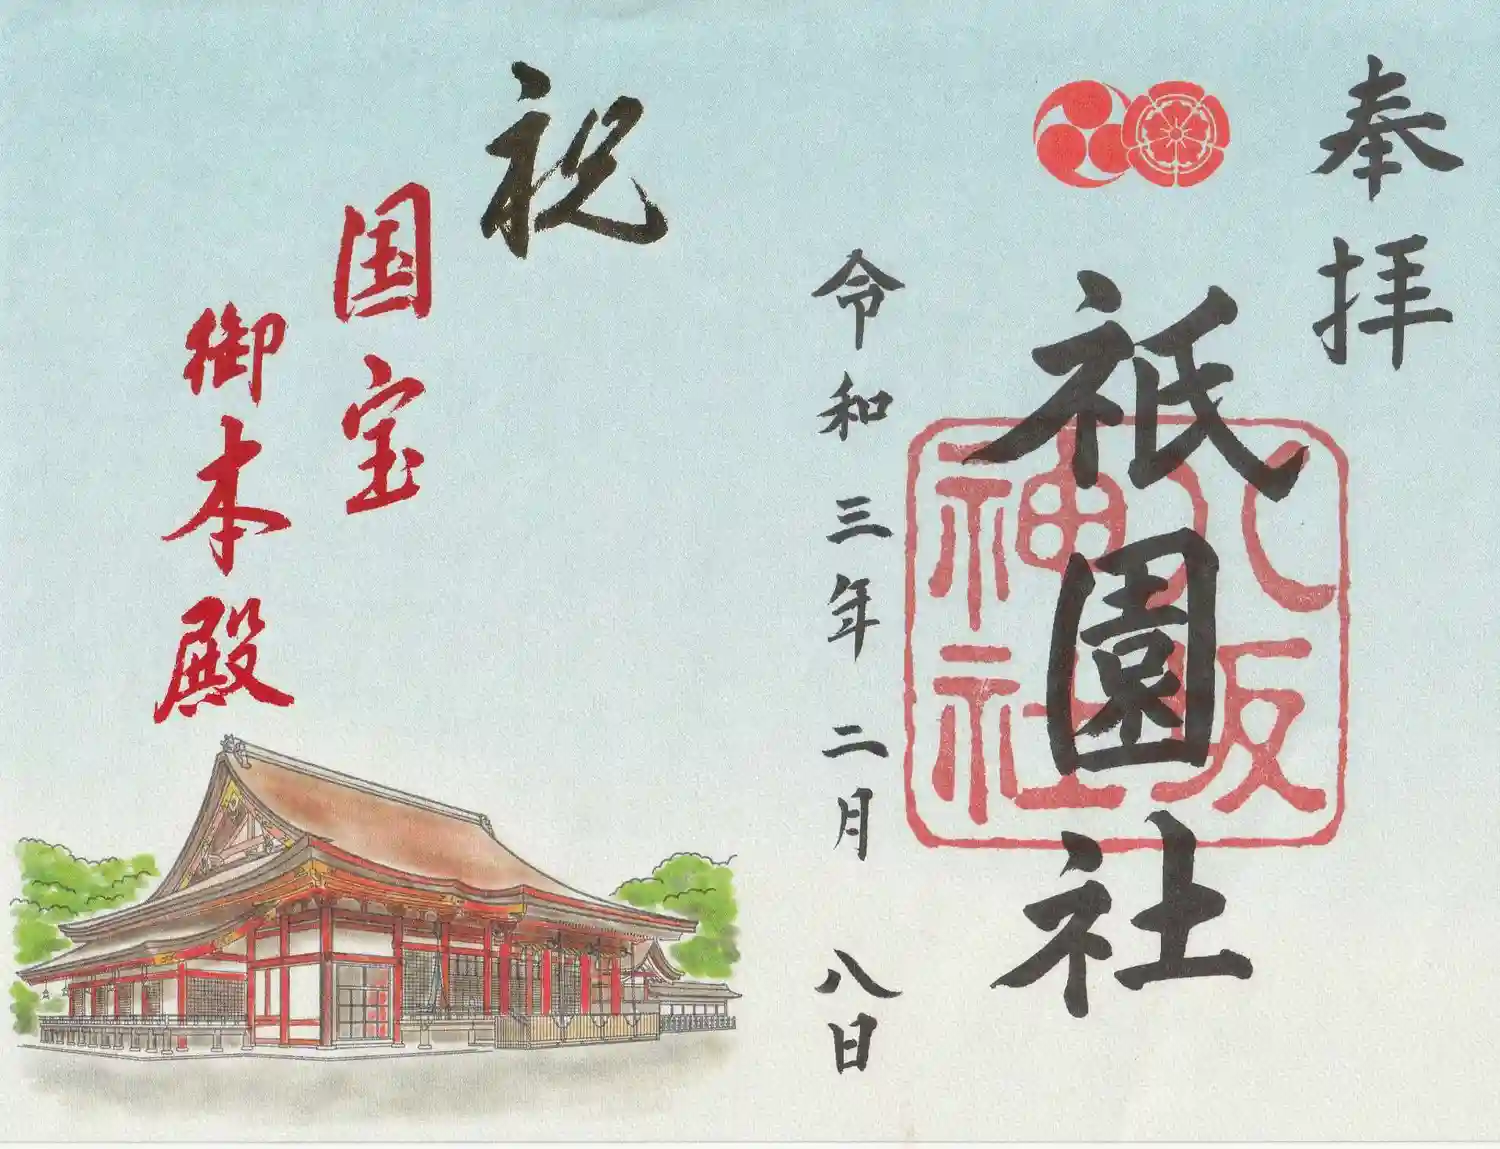 奉拝
祇園社
八坂神社
令和三年二月八日
祝
国宝
御本殿